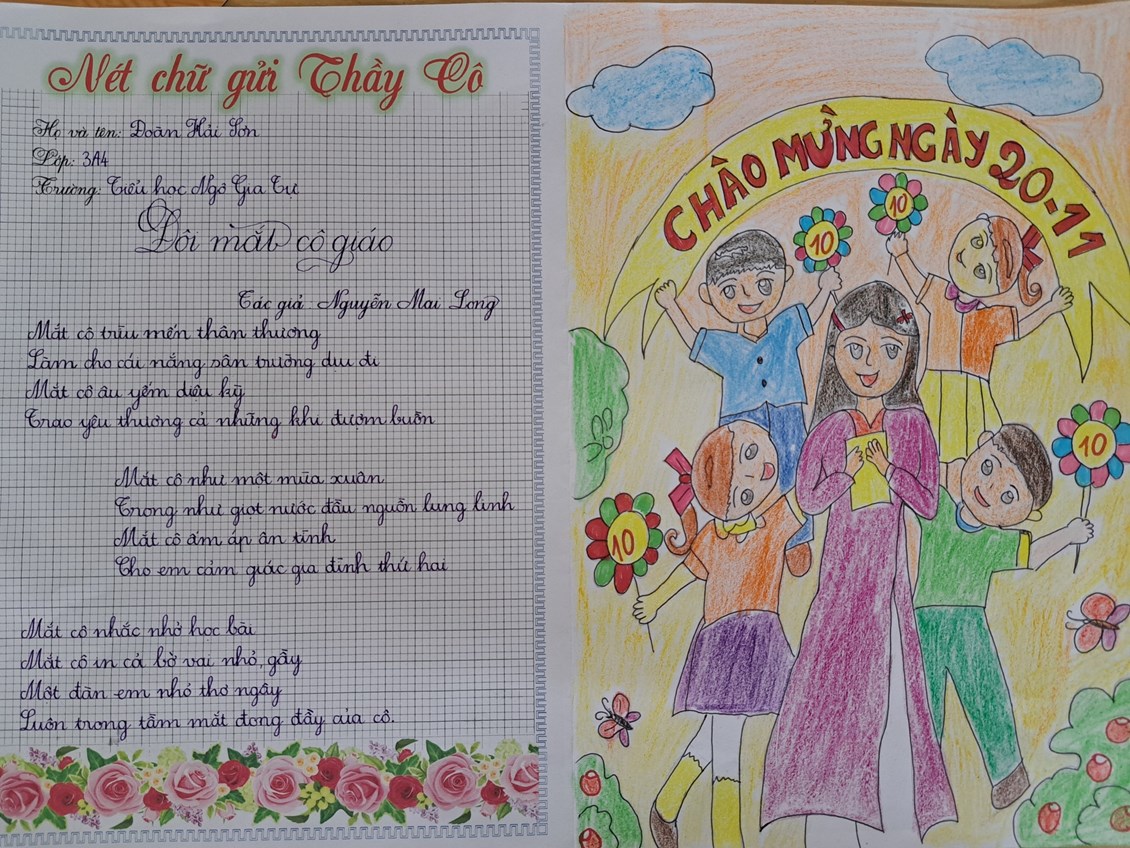 Nét chữ gửi Thầy Cô
Họ và tên: Đoàn Hải Sơn
Lớp: 3A4
Trường: Tiểu học Ngô Gia Tự
Đôi mắt cô giáo
Tác giả Nguyễn Mai Long
Mắt cô trìu mến thân thương
Làm cho cái nắng sân trường dịu đi
Mắt cô âu yếm diệu kỳ
Trao yêu thương cả những khi đượm buồn
Mắt cô như một mùa xuân
Trong như giọt nước đầu nguồn lung linh
Mắt cô ấm áp ân tình
Cho em cảm giác gia đình thứ hai
Mắt cô nhắc nhở học bài
Mắt cô in cả bờ vai nhỏ, gầy
Một đàn em nhỏ thơ ngây
Luôn trong tầm mắt đong đầy của cô.
CHÀO MỪNG NGÀY 20-11
10
10
10
10